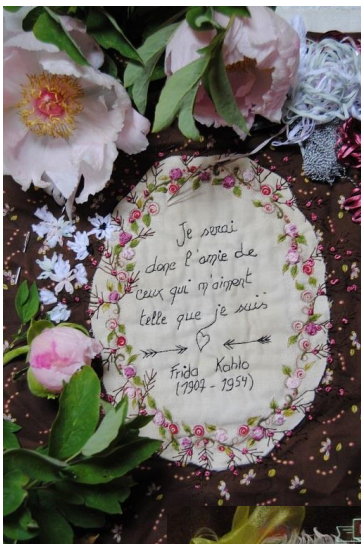 Je serai
donc l'amie de
ceux qui m'aiment
telle que je suis
Frida Kahlo
(1907 - 1954)